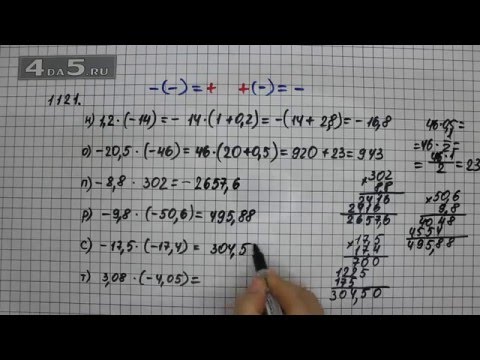 4DA5.RU
-(-)=+ +(-)=-
1121.
н) 1,2·(-14)=-14·(1+0,2)=-(14+2,8)=-16,8
о) -20,5·(-46)=46·(20+0,5)=920+23=943
п) -8,8·302=-2657,6
р) -9,8·(-50,6)=495,88
с) -17,5·(-17,4)= 304,5
т) 3,08·(-4,05)=
=46·
= 23
2
×302
8,8
2416
2416
2657,6
×50,6
9,8
4048
4554
495,88
×17,5
17,4
700
1225
175
304,50